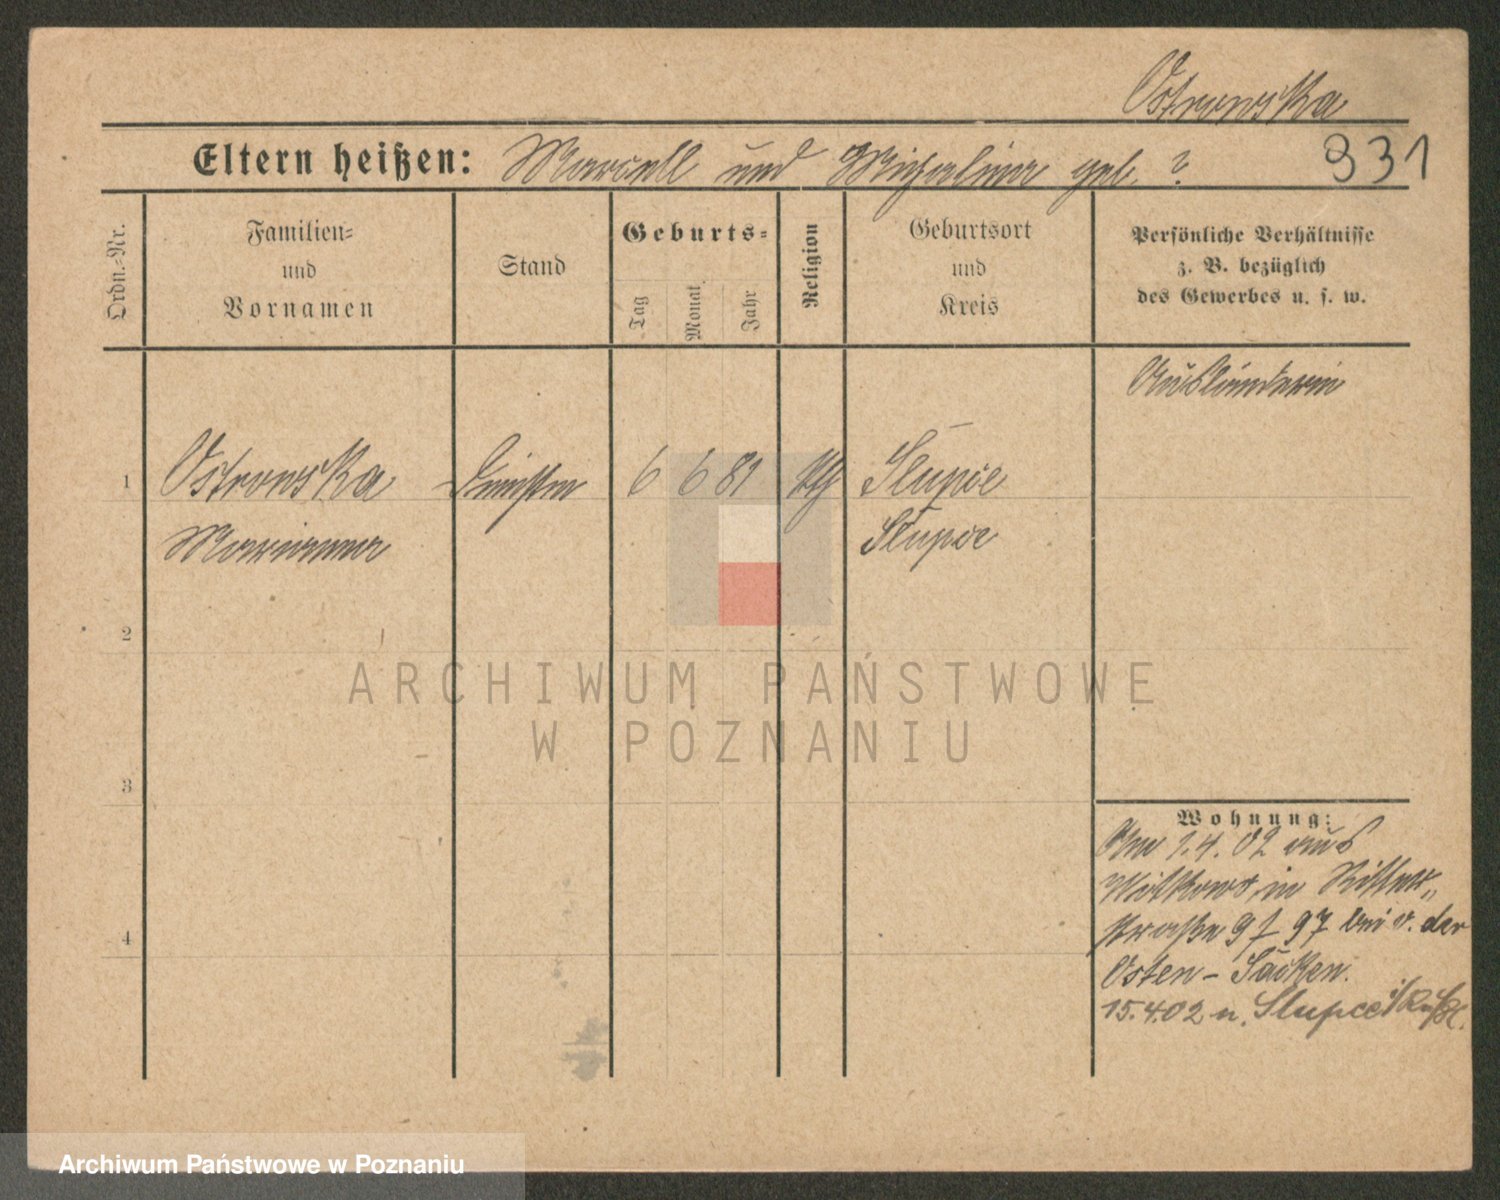 Ostrowska
Eltern heißen: Marcell und Michalina geb. ?
331
Ordn.-Nr.
Familien-
und
Vornamen
Stand
Geburts-
Tag
Monat
Jahr
Religion
Geburtsort
und
Kreis
Persönliche Verhältnisse
z. B. bezüglich
des Gewerbes u. s. w.
Ausländerin
1
Ostrowska
6 6 81
Slupce
Marianna
Slupce
2
3
4
Wohnung:
Am 1.4.02 aus
Witkowo, in Ritter„
straße 9 f 97 bei v. der
Osten-Sacken.
15.4.02 n. Slupce i/Rußl.
ARCHIWUM PAŃSTWOWE
W POZNANIU
Archiwum Państwowe w Poznaniu